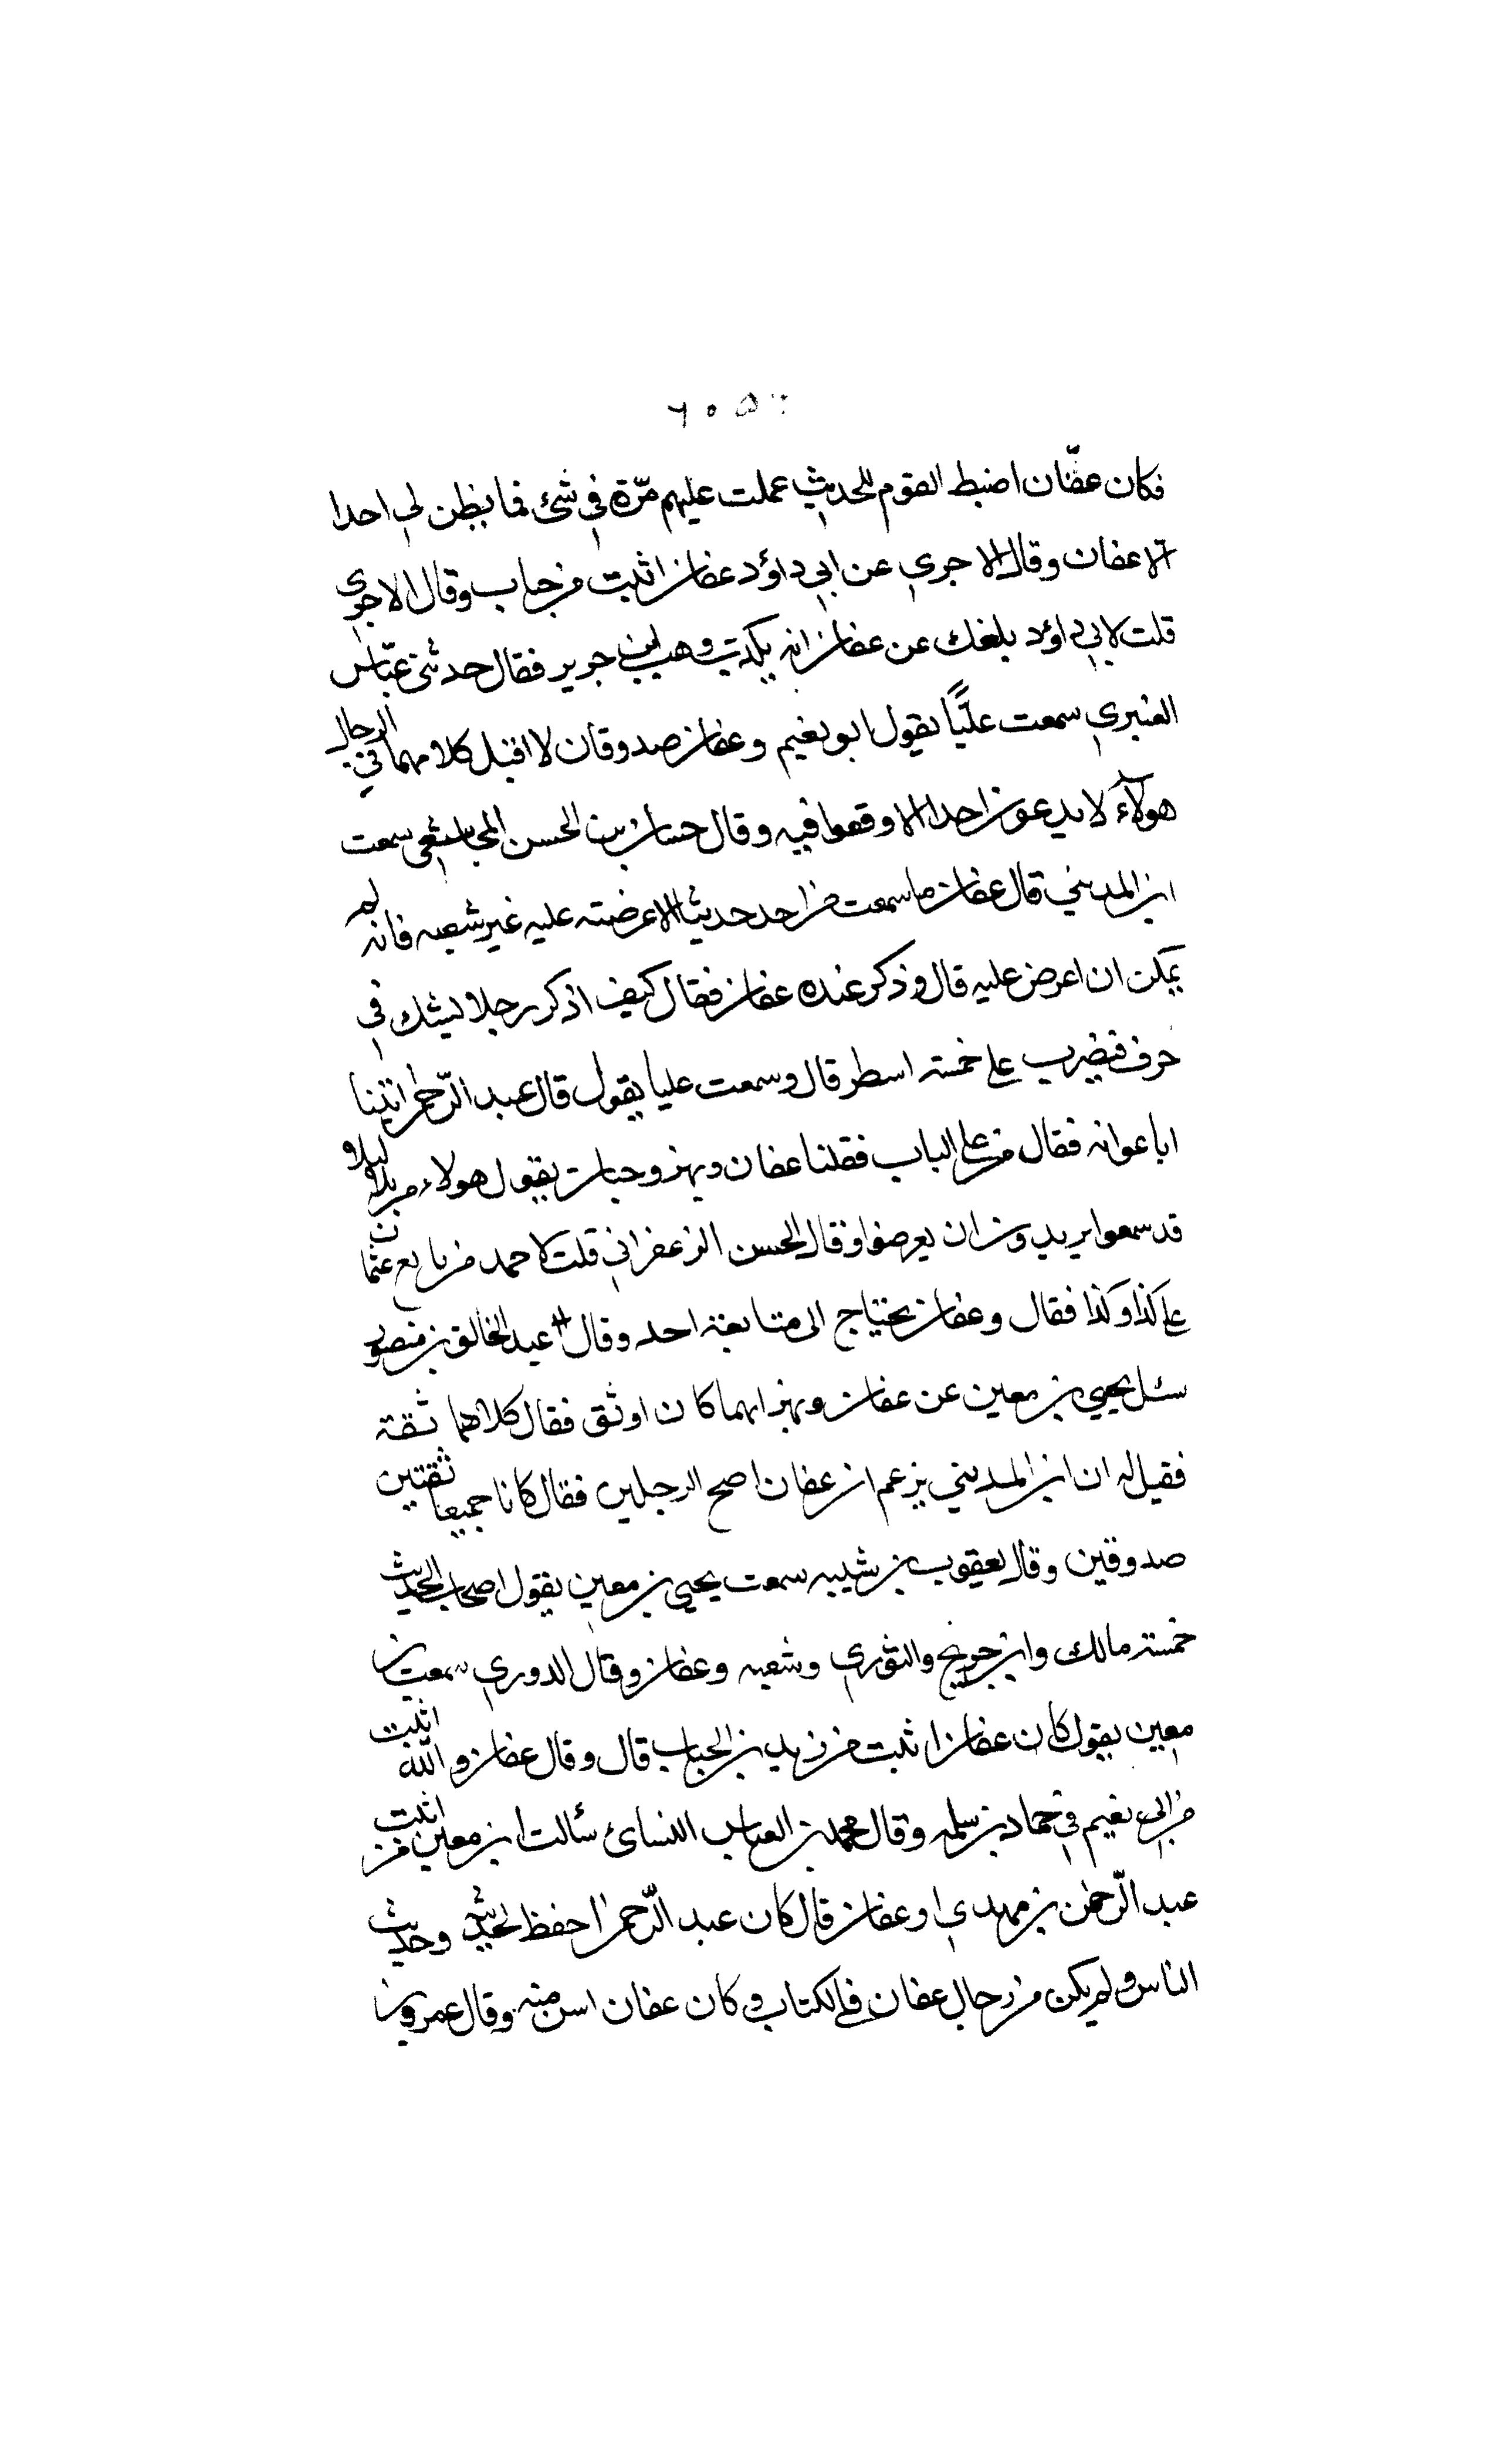 ٦٠٥
فكان عفّان اضبط القوم للحديث عملت عليهم مرّة في شئ فما يظن لي احدا
الا عفان وقال الاجري عن ابي داؤد عفان اثبت من حباب وقال الاجري
قلت لابي داؤد بلغك عن عفان انه يكذب وهب ابن جرير فقال حدثني عبّاس
العنبري سمعت عليًّا يقول ابو نعيم وعفان صدوقان لا اقبل كلامهما في الرجال
هولاء لا يدعون احدا الا وقعوا فيه وقال حسان بن الحسن المجاشعي سمعت
ابن المديني قال عفان ما سمعت من احد حديثا الا عرضته عليه غير شعبه فانه لم
يمكن ان اعرض عليه قال وذكر عنده عفان فقال كيف اذكر رجلا ليشك في
حرف فيضرب على خمسة اسطر قال وسمعت عليا يقول قال عبد الرّحمن اتينا
ابا عوانه فقال من على الباب فقلنا عفان وبهز وحبان يقول هولاء من بلا ليلاو
قد سمعوا يريدون ان يعرضوا وقال الحسن الزعفراني قلت لاحمد من تابع عثمان
على كذا وكذا فقال وعفان يحتاج الى متابعة احد وقال عبد الخالق بن منصور
سئل يحيي بن معين عن عفان وبهز ايهما كان اوثق فقال كلاهما ثقة
فقيل له ان ابن المديني يزعم ان عفان اصح الرجلين فقال كانا جميعا ثقتين
صدوقين وقال يعقوب بن شيبه سمعت يحيي بن معين يقول اصحاب الحديث
خمسة مالك وابن جريج والثوري وشعبه وعفان وقال الدوري سمعت بن
معين يقول كان عفان اثبت من زيد بن الحباب قال وقال عفان والله اثبت
من ابي نعيم في حماد بن سلمه وقال محمد بن العباس النسائ سئالت ابن معين من اثبت
عبد الرّحمن بن مهدي او عفان قال كان عبد الرّحمن احفظ لحديثه وحديث
الناس ولم يكن من رجال عفان في الكتاب وكان عفان اسن منه وقال عمرو بن